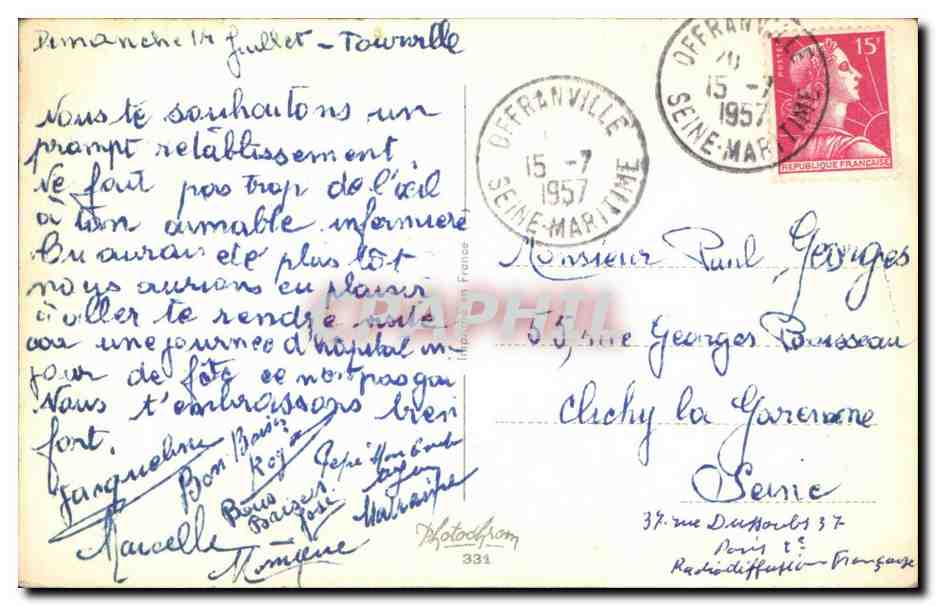 Dimanche 14 Juillet - Tourville
Nous te souhaitons un
prompt rétablissement.
Ne fait pas trop de l'œil
à ton aimable infirmière
tu aurais été plus tôt
nous aurions eu plaisir
à aller te rendre visite
car une journée d'hôpital un
jour de fête ce n'est pas gai
Nous t'embrassons bien
fort.
Jacqueline
Bon Baiser
Bons
Baisers
José
Marraine
Marcelle
Monique
Photochrom
331
OFFRANVILLE
15 -7
1957
SEINE-MARITIME
OFFRANVILLE
15 -7
1957
SEINE-MARITIME
POSTES
15F
REPUBLIQUE FRANÇAISE
CPAPHIL
Monsieur Paul Georges
55, rue Georges Boisseau
Clichy la Garenne
Seine
37 rue Dussoubs 37
Paris 2e
Radiodiffusion Française